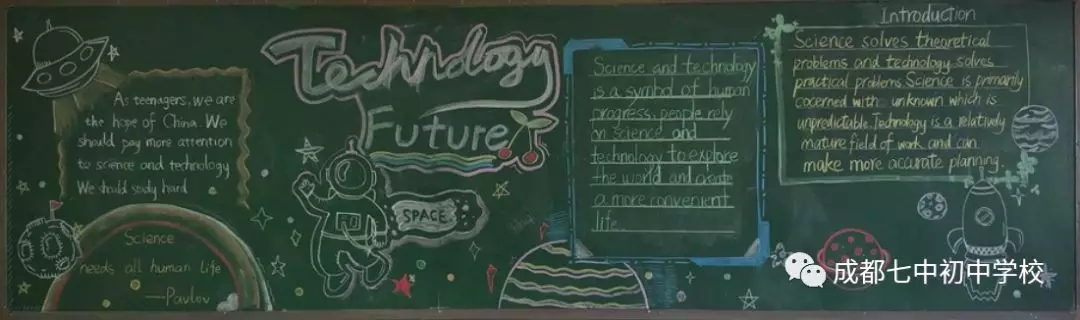 As teenagers, we are
the hope of China. We
should pay more attention
to science and technology
We should study hard
Science
needs all human life
—Pavlov
Technology
Future
SPACE
Science and technology
is a symbol of human
progress. people rely
on science and
technology to explore
the world and create
a more convenient
life.
Introduction
Science solves theoretical
problems and technology solves
practical problems Science is primarily
cocerned with unknown which is
unpredictable. Technology is a relatively
mature field of work and can
make more accurate planning.
成都七中初中学校